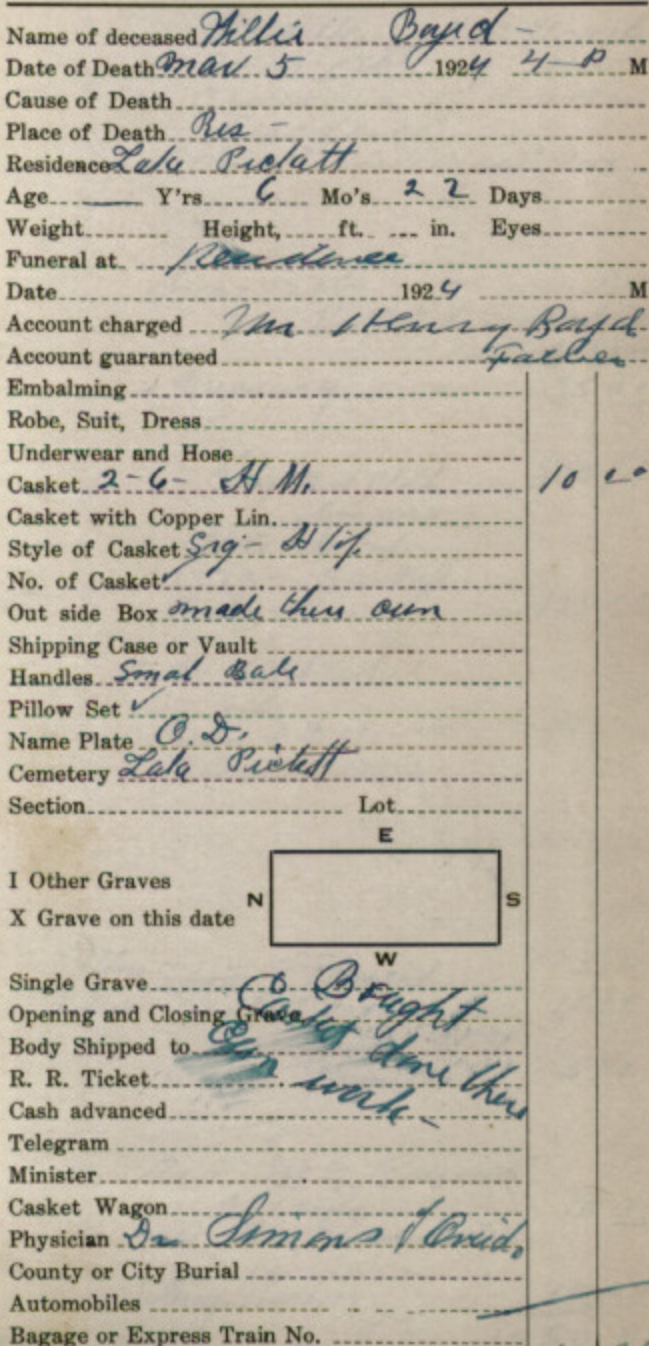 Name of deceased Willis Boyd -
Date of Death Mar 5 1924 4-P M
Cause of Death
Place of Death Res -
Residence Lake Pickett
Age — Y'rs. 6 Mo's 22 Days
Weight Height, ft. in. Eyes
Funeral at Residence
Date 1924 M
Account charged Mr Henry Boyd
Account guaranteed Father
Embalming
Robe, Suit, Dress
Underwear and Hose
Casket 2-6- 10 00
Casket with Copper Lin.
Style of Casket
No. of Casket
Out side Box made there own
Shipping Case or Vault
Handles Smal Bale
Pillow Set ✓
Name Plate O.D.
Cemetery Lake Pickett
Section Lot
E
I Other Graves
N S
X Grave on this date
W
Single Grave Bought
Opening and Closing Grave Casket done there
Body Shipped to Own work -
R. R. Ticket
Cash advanced
Telegram
Minister
Casket Wagon
Physician Dr Simons Oviedo
County or City Burial
Automobiles
Bagage or Express Train No.